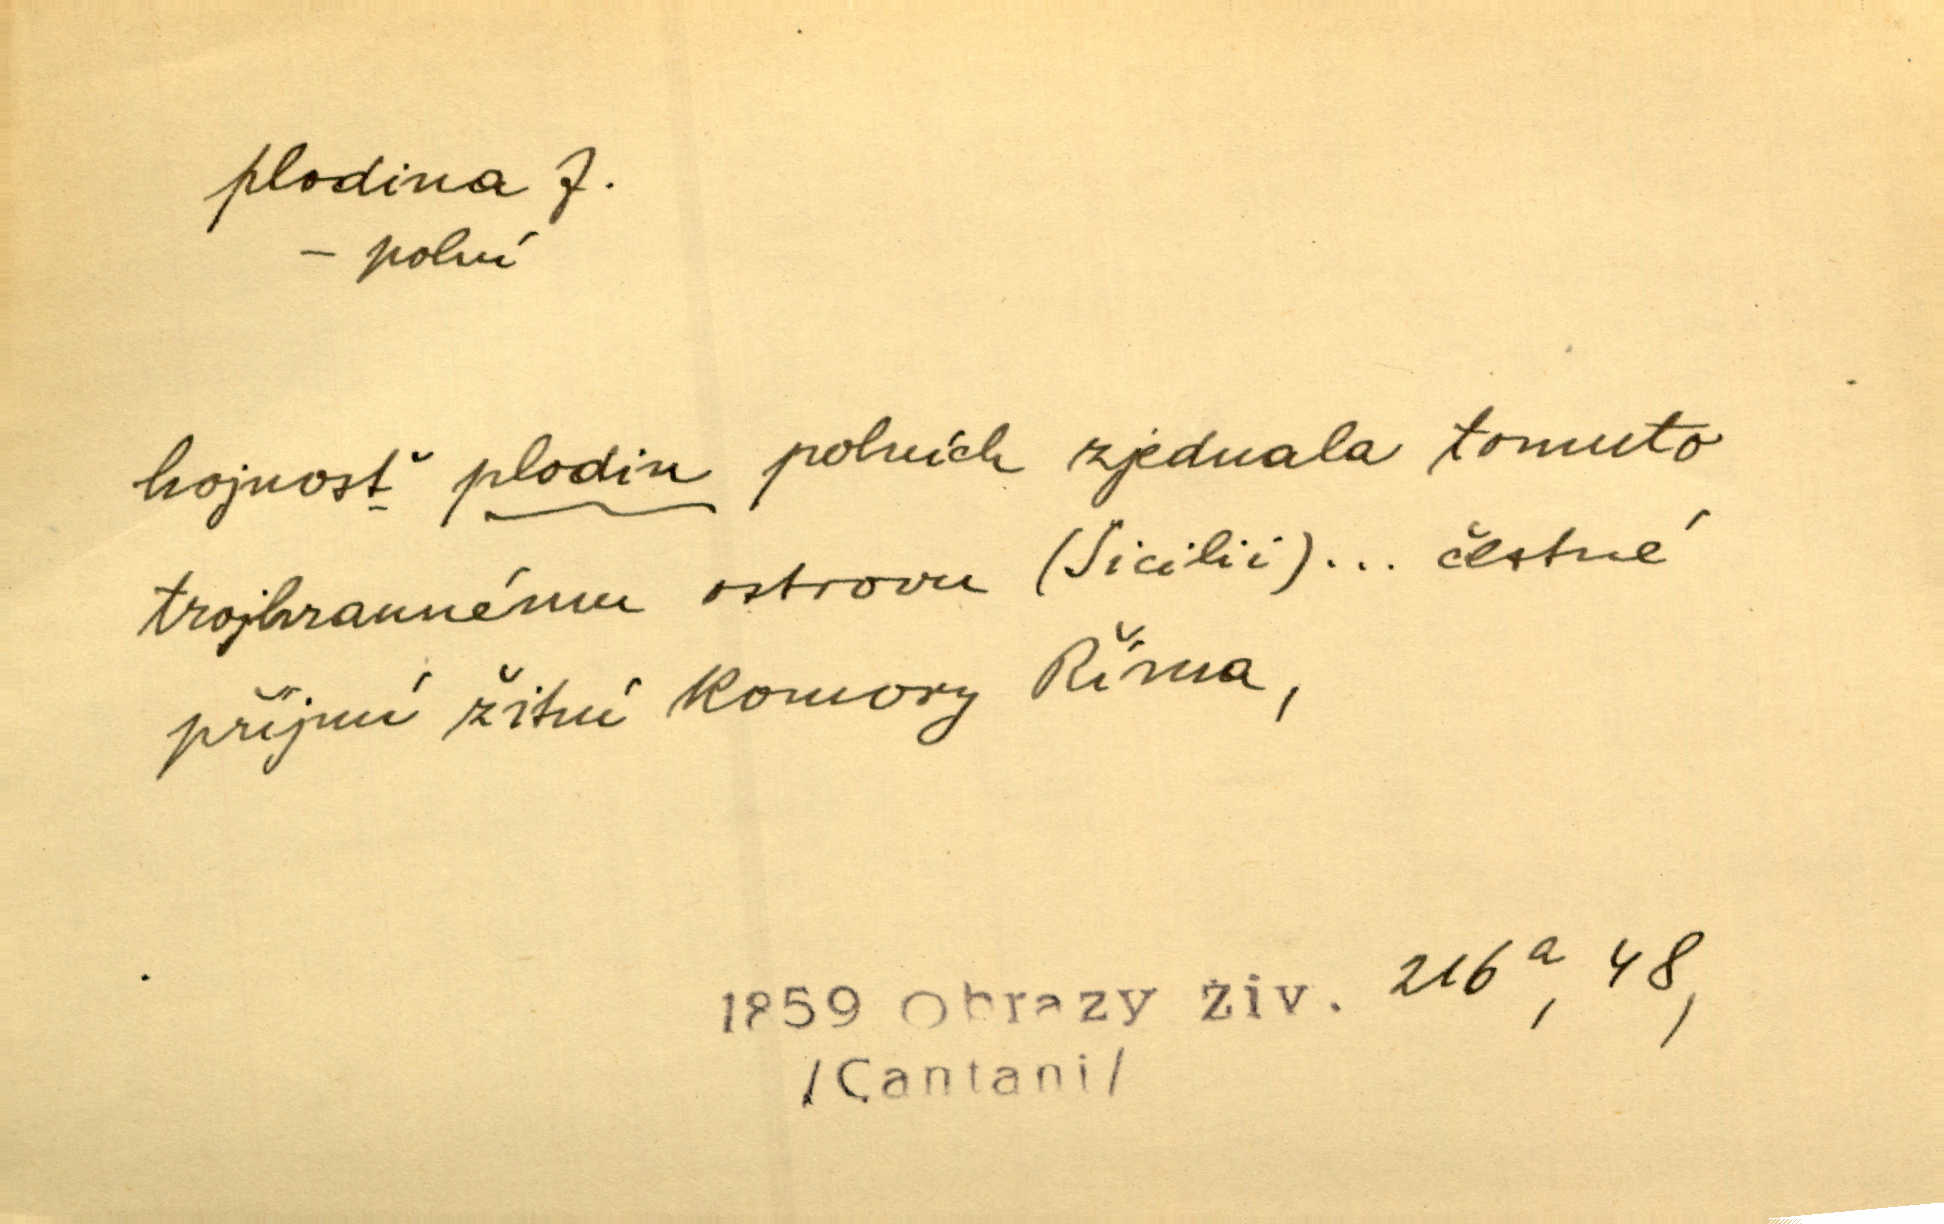 plodina f.
– polní
hojnosť plodin polních zjednala tomuto
trojhrannému ostrovu (Sicilii)... čestné
příjmí žitní Komory Říma,
1859 Obrazy živ. 216ᵃ, 48,
/Cantani/